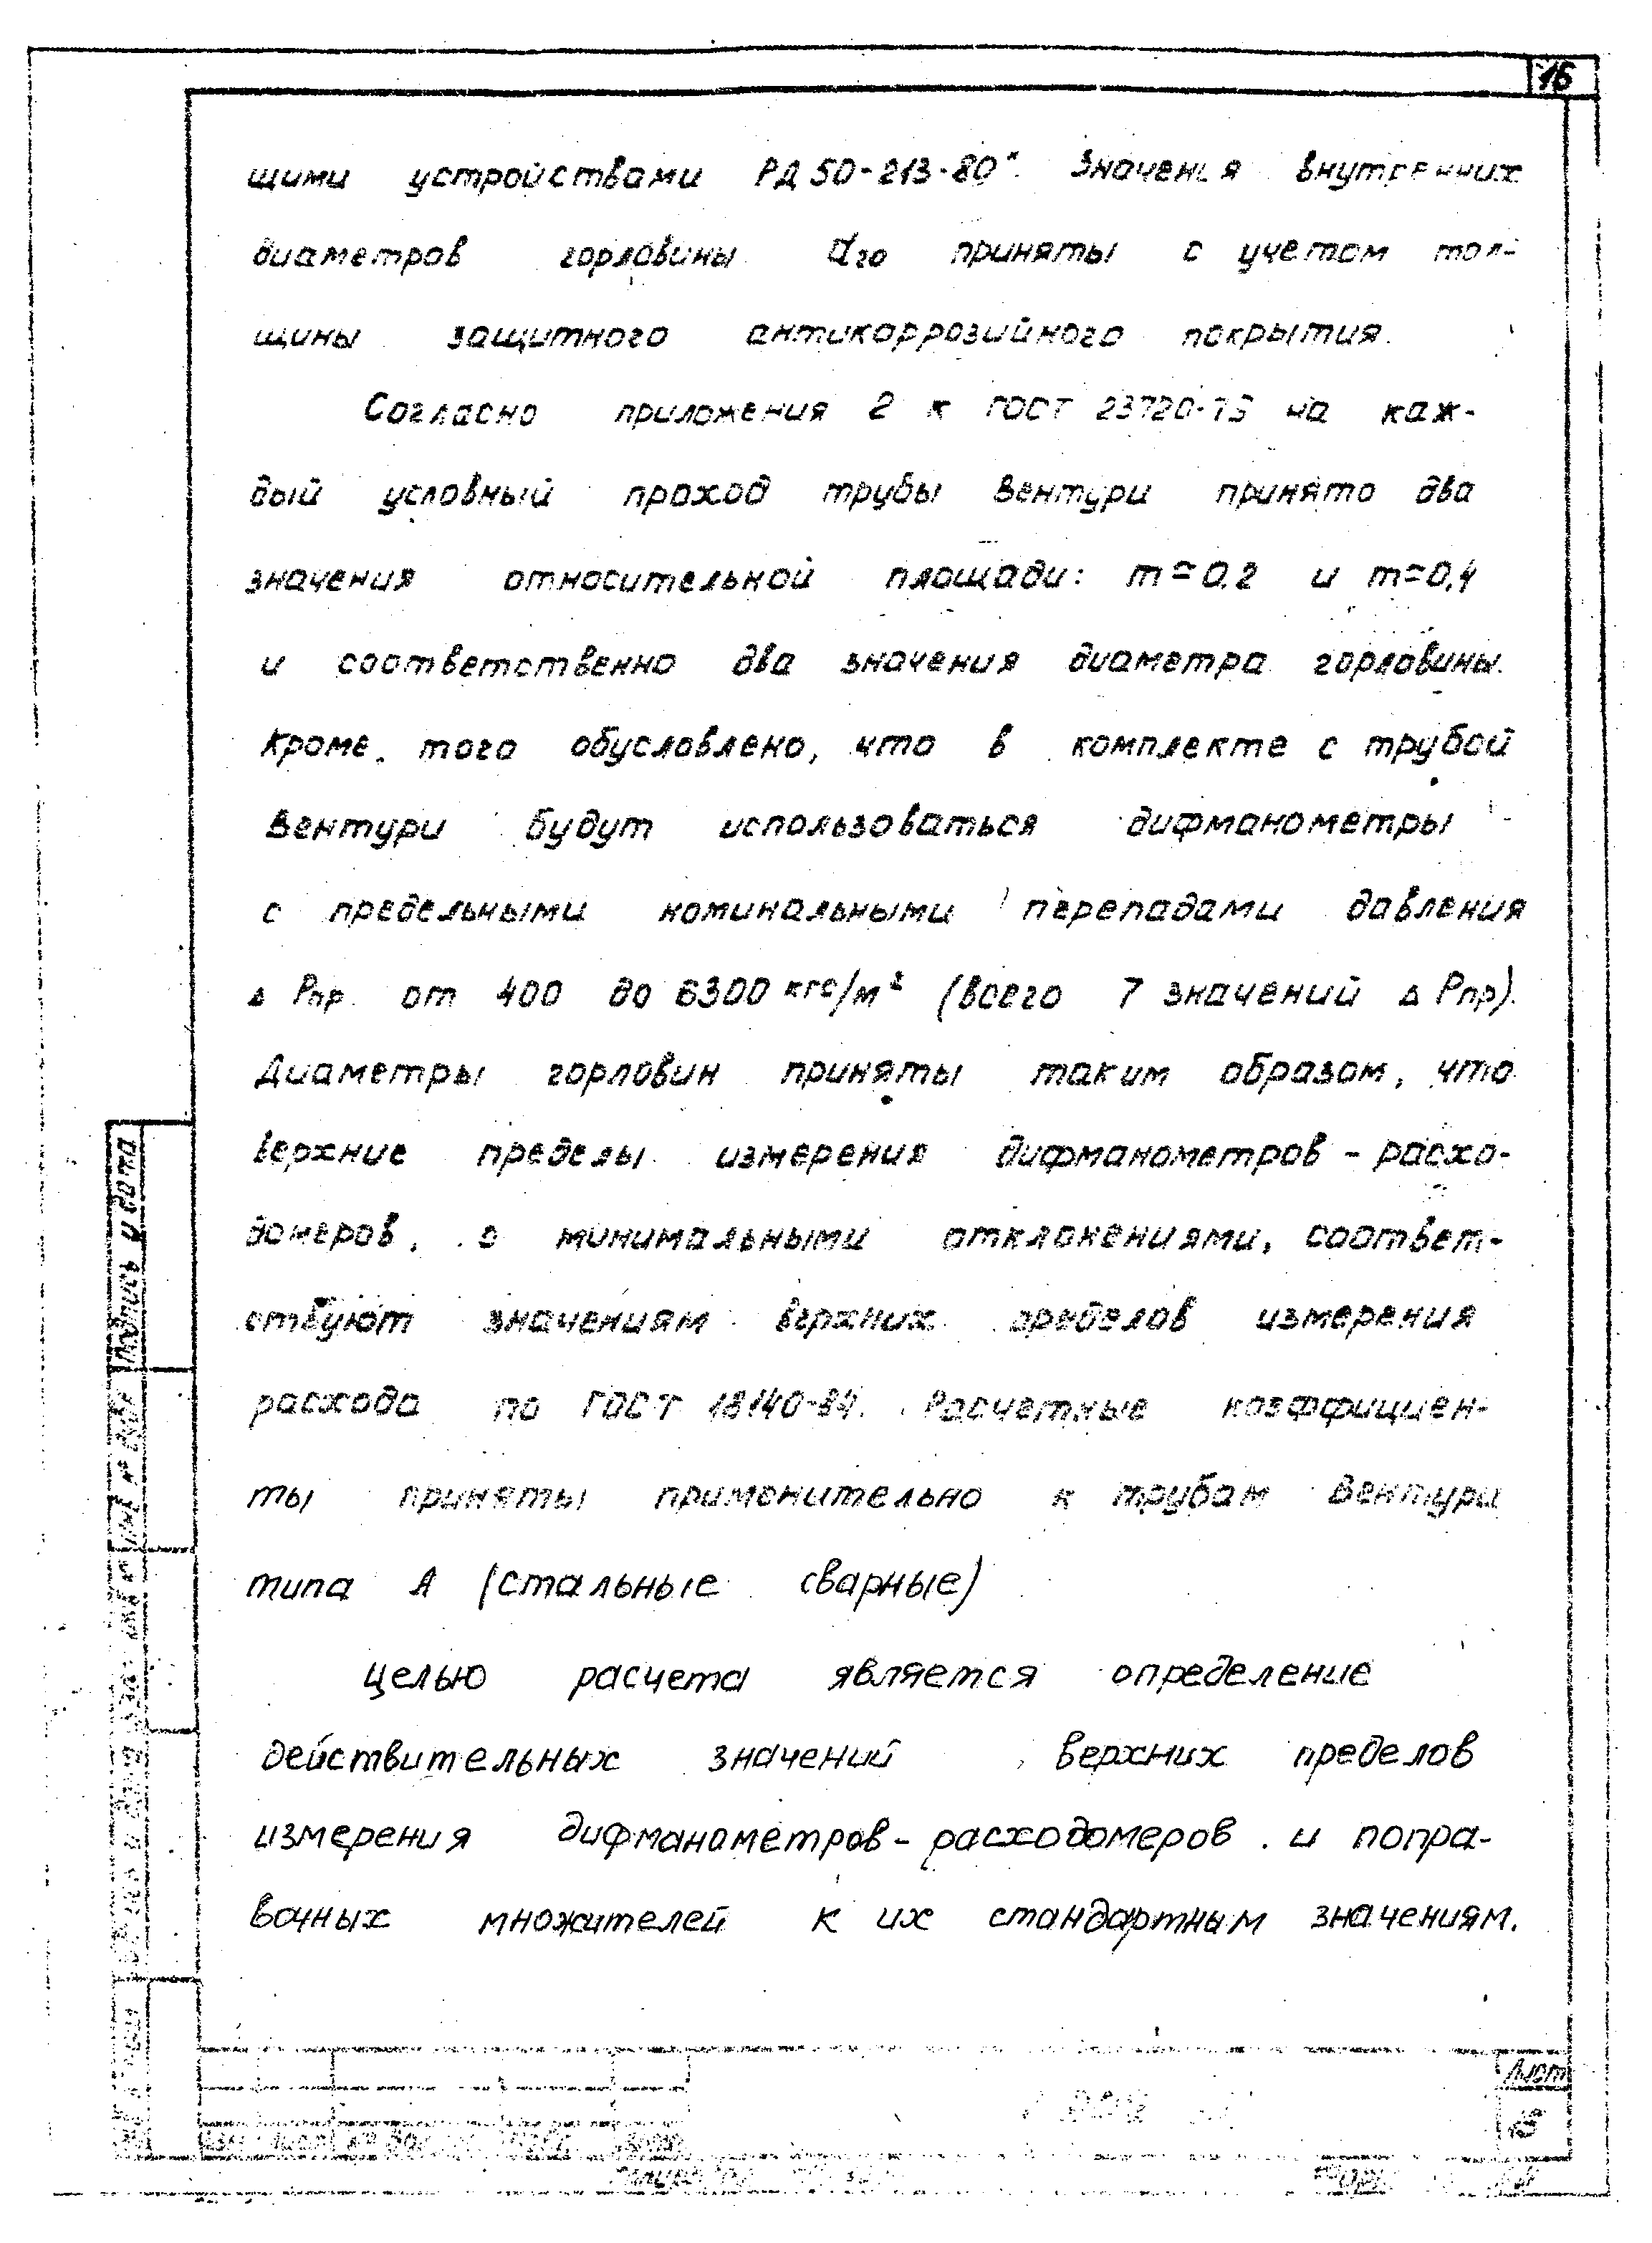 16
щими устройствами РД 50-213-80". Значения внутренних
диаметров горловины dго приняты с учетом тол-
щины защитного антикоррозийного покрытия.
Согласно приложения 2 к ГОСТ 23720-79 на каж-
дый условный проход трубы Вентури принято два
значения относительной площади: m=0,2 и m=0,4
и соответственно два значения диаметра горловины.
Кроме того обусловлено, что в комплекте с трубой
Вентури будут использоваться дифманометры
с предельными номинальными перепадами давления
Δ Рпр. от 400 до 6300 кгс/м² (всего 7 значений Δ Рпр).
Диаметры горловин приняты таким образом, что
верхние пределы измерения дифманометров - расхо-
домеров, с минимальными отклонениями, соответ-
ствуют значениям верхних пределов измерения
расхода по ГОСТ 18140-84. Расчетные коэффициен-
ты приняты применительно к трубам Вентури
типа А (стальные сварные)
Целью расчета является определение
действительных значений верхних пределов
измерения дифманометров - расходомеров и попра-
вочных множителей к их стандартным значениям.
Подпись и дата
Лист
15